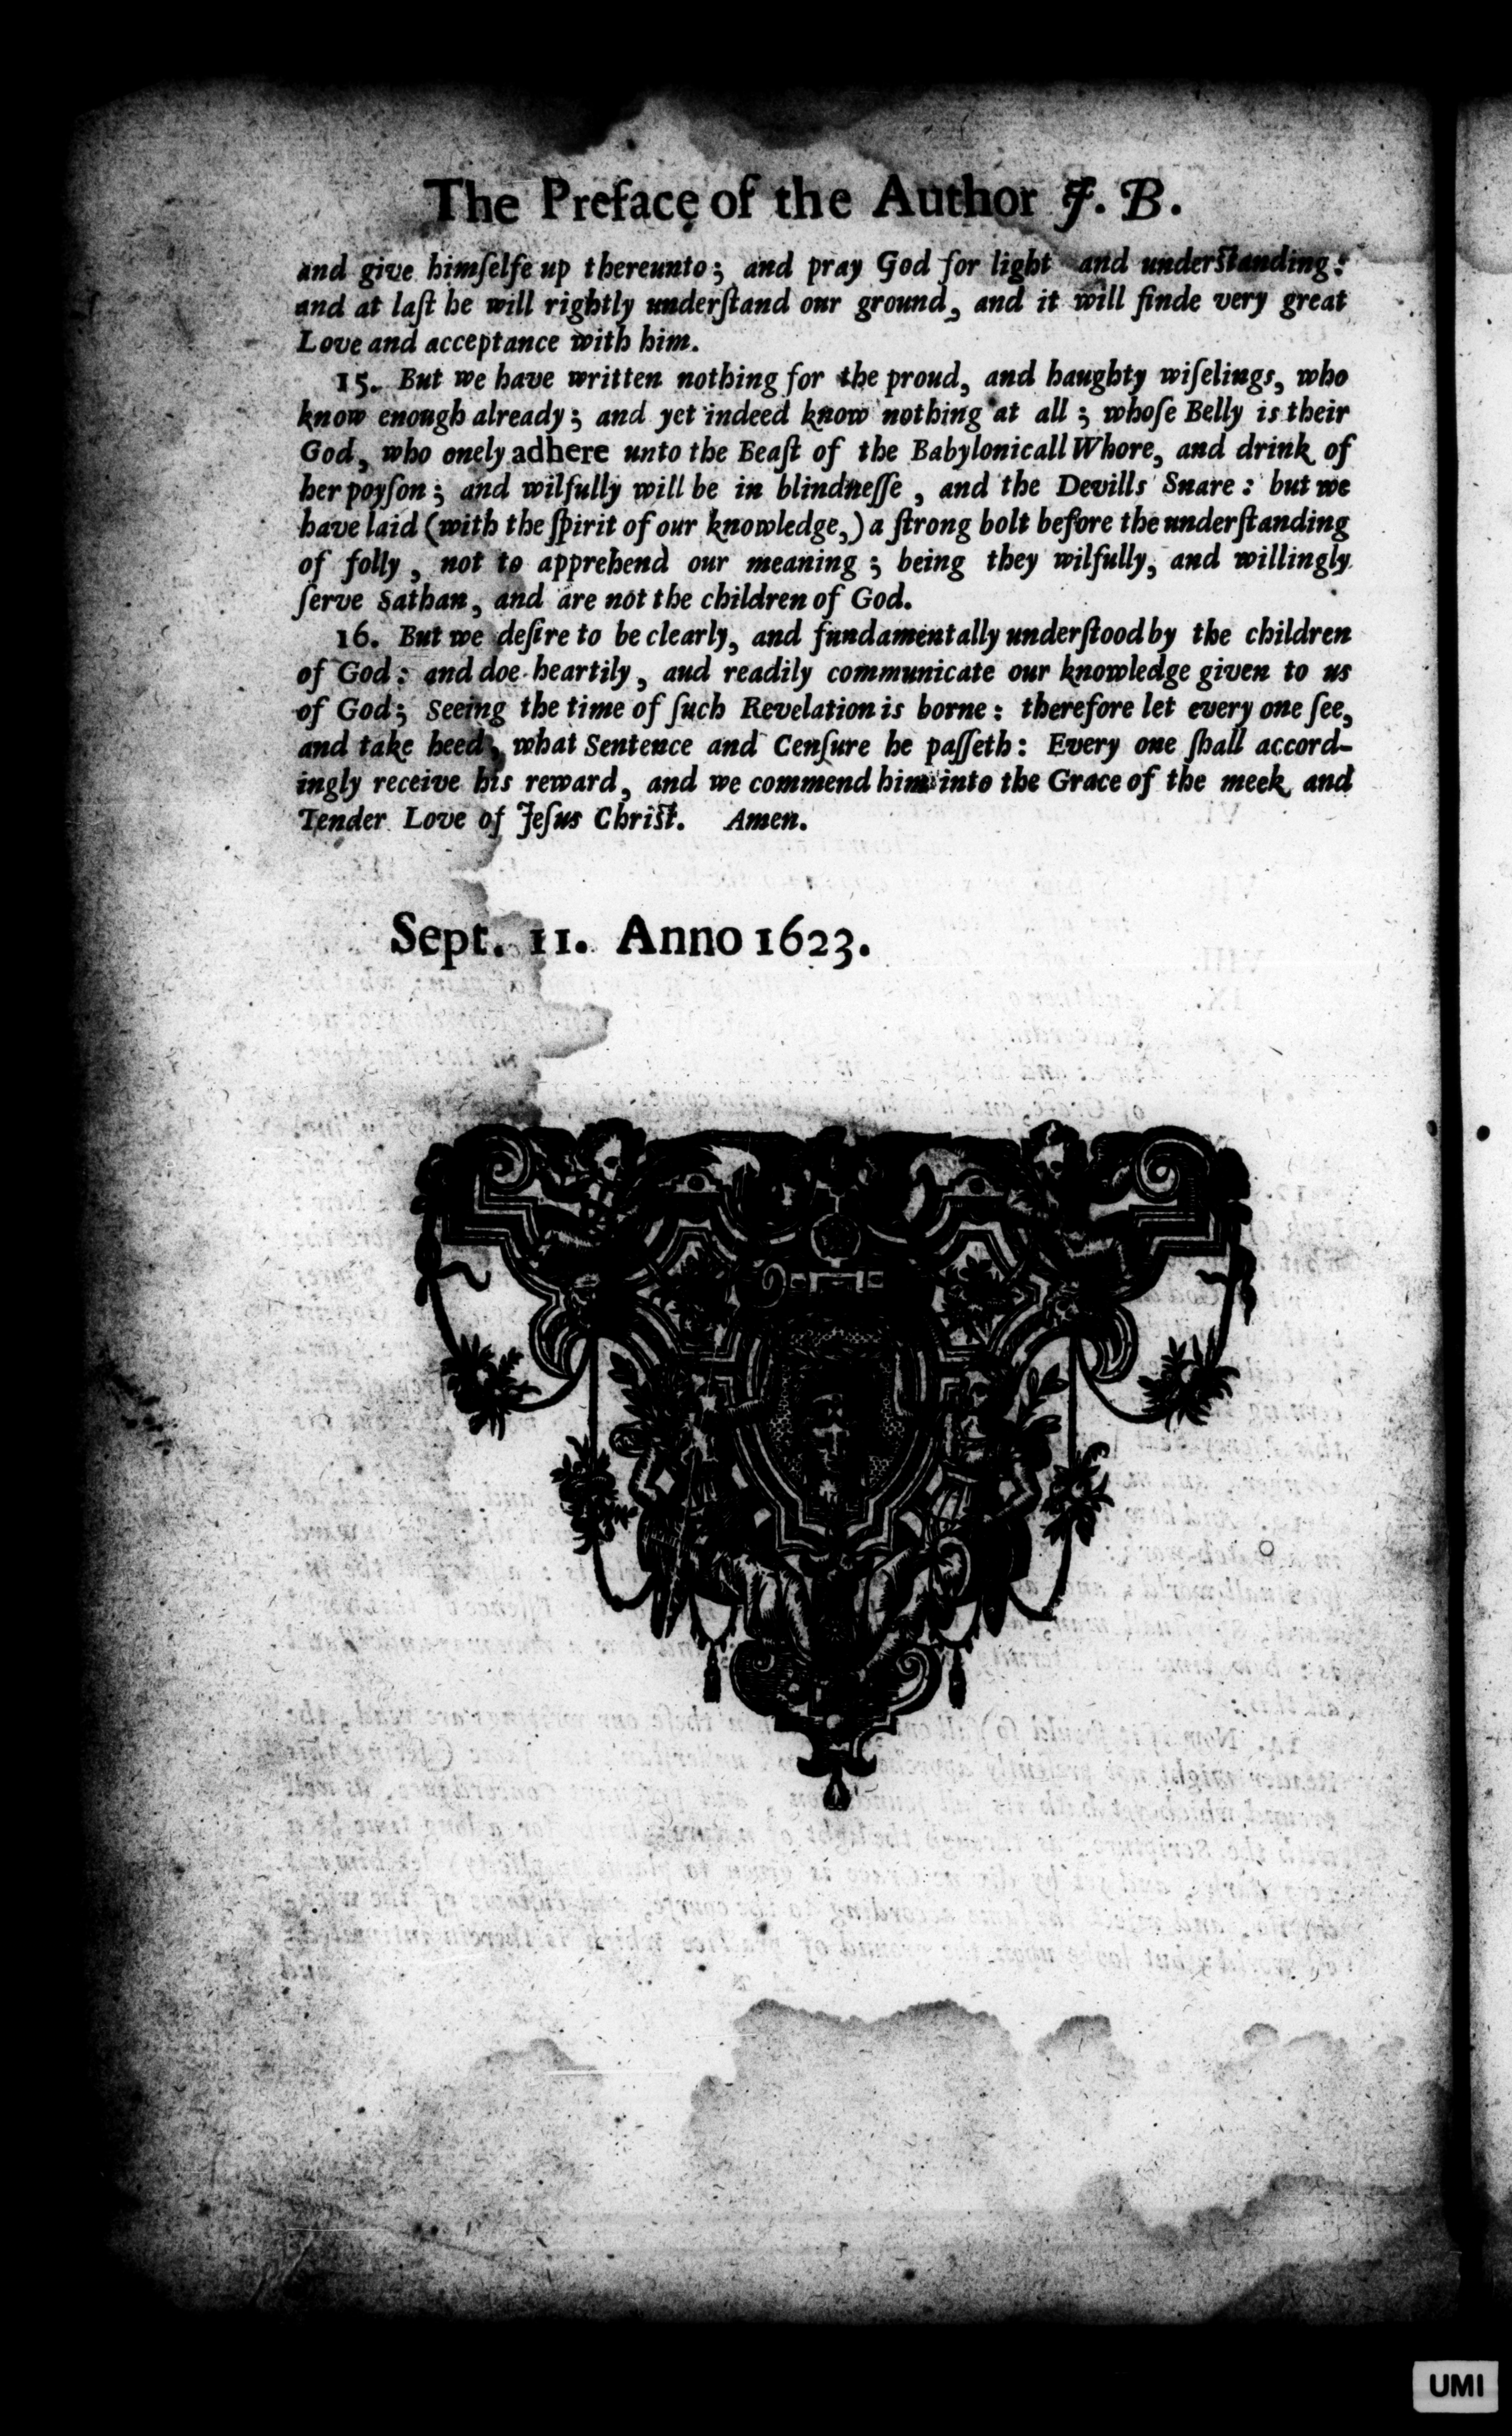 The Preface of the Author J. B.
and give himſelfe up thereunto; and pray God for light and underſtanding:
and at laſt he will rightly underſtand our ground, and it will finde very great
Love and acceptance with him.
15. But we have written nothing for the proud, and haughty wiſelings, who
know enough already; and yet indeed know nothing at all; whoſe Belly is their
God, who onely adhere unto the Beaſt of the Babylonicall Whore, and drink of
her poyſon; and wilfully will be in blindneſſe, and the Devills Snare: but we
have laid (with the ſpirit of our knowledge,) a ſtrong bolt before the underſtanding
of folly, not to apprehend our meaning; being they wilfully, and willingly
ſerve Sathan, and are not the children of God.
16. But we deſire to be clearly, and fundamentally underſtood by the children
of God: and doe heartily, aud readily communicate our knowledge given to us
of God; Seeing the time of ſuch Revelation is borne: therefore let every one ſee,
and take heed, what Sentence and Cenſure he paſſeth: Every one ſhall accord-
ingly receive his reward, and we commend him into the Grace of the meek and
Tender Love of Jeſus Chriſt. Amen.
Sept. 11. Anno 1623.
UMI